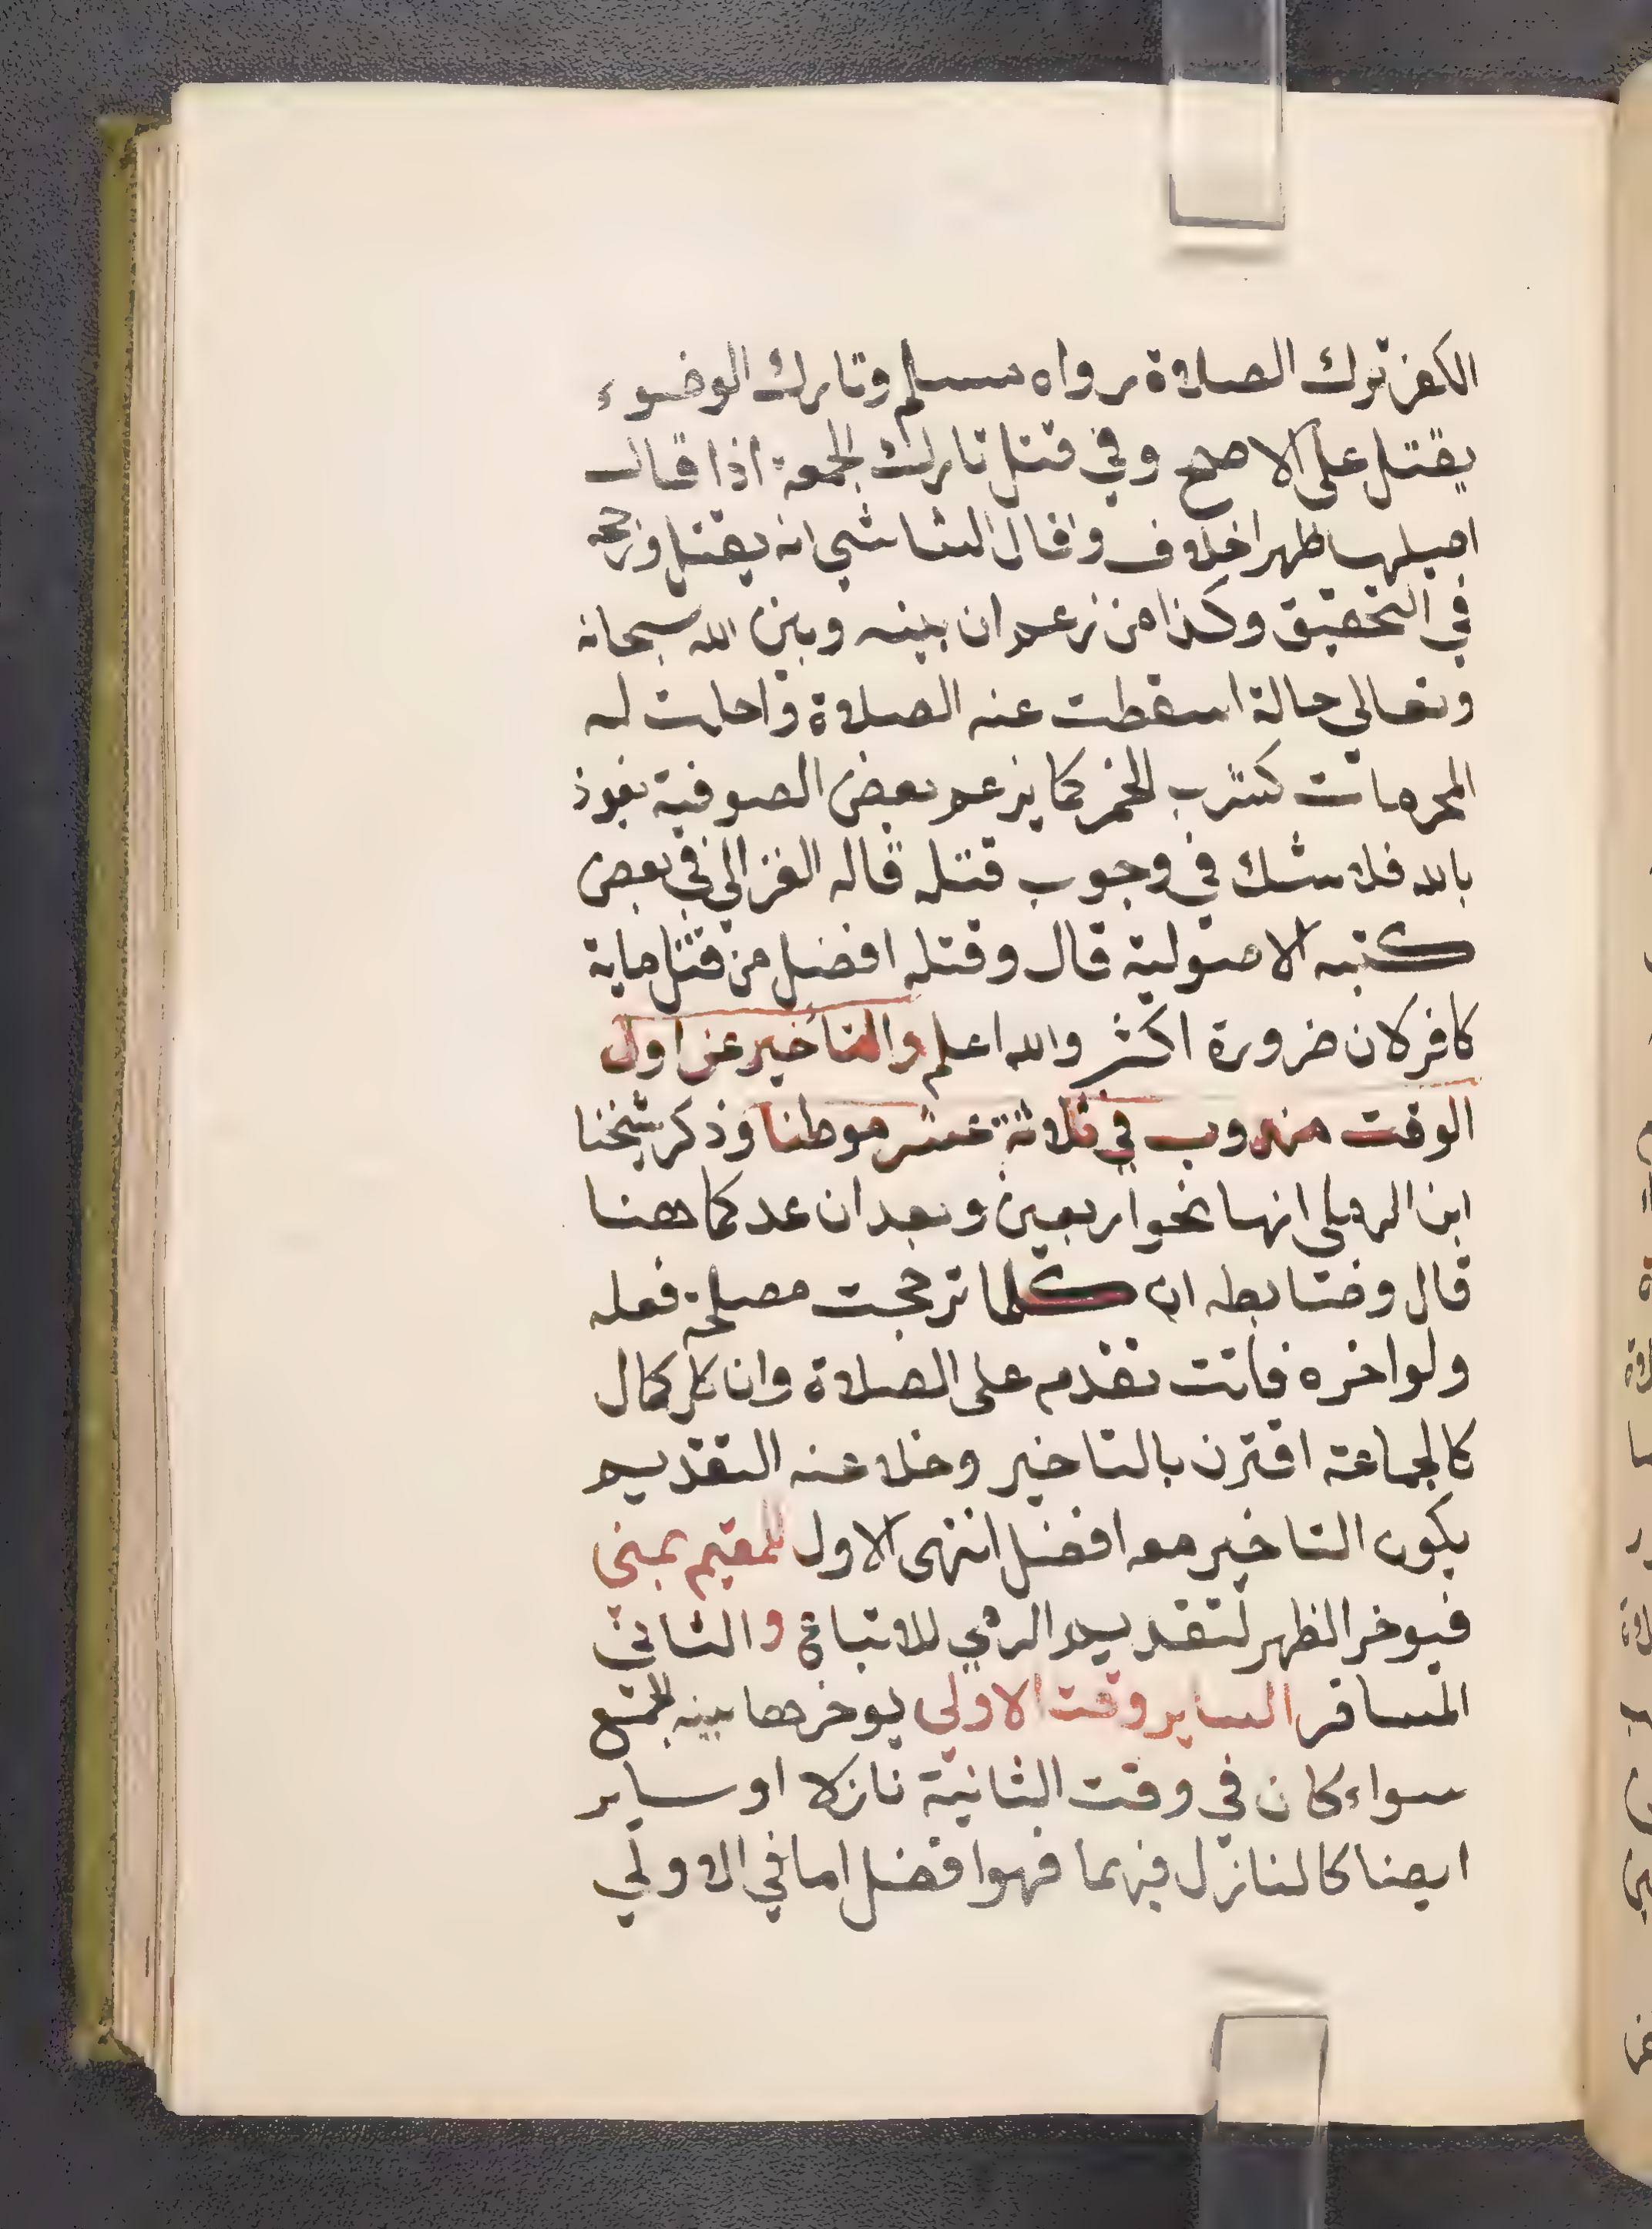 الكفر ترك الصلاة رواه مسلم وتارك الوضوء
يقتل على الاصح وفي قتل تارك الجمعة اذا قال
اصيلها ظهرا خلاف وقال الشاشي انه يقتل ورجحه
في التحقيق وكذا من زعم ان بينه وبين الله سبحانه
وتعالى حالة اسقطت عنه الصلاة واحلت له
المحرمات كشرب الخمر كما يزعم بعض الصوفية نعوذ
بالله فلا شك في وجوب قتله قاله الغزالي في بعض
كتبه الاصولية قال وقتله افضل من قتل ماية
كافر كان ضرورة اكثر والله اعلم والتأخير عن اول
الوقت مندوب في ثلاثة عشر موطنا وذكر شيخنا
ابن الرملي انها نحو اربعين وبعد ان عد كما هنا
قال وضابطه ان كلما ترجحت مصلحة فعله
ولو اخره فاتت تقدم على الصلاة وان كل كمال
كالجماعة اقترن بالتاخير وخلا عنه التقديم
يكون التاخير معه افضل انتهى الاول للمقيم بمنى
فيوخر الظهر لتقديم الرمي للاتباع والثاني
المسافر الساير وقت الاولى يوخرها بنية الجمع
سواء كان في وقت الثانية نازلا او ساير
ايضا كالنازل فيهما فهو افضل اما في الاولي